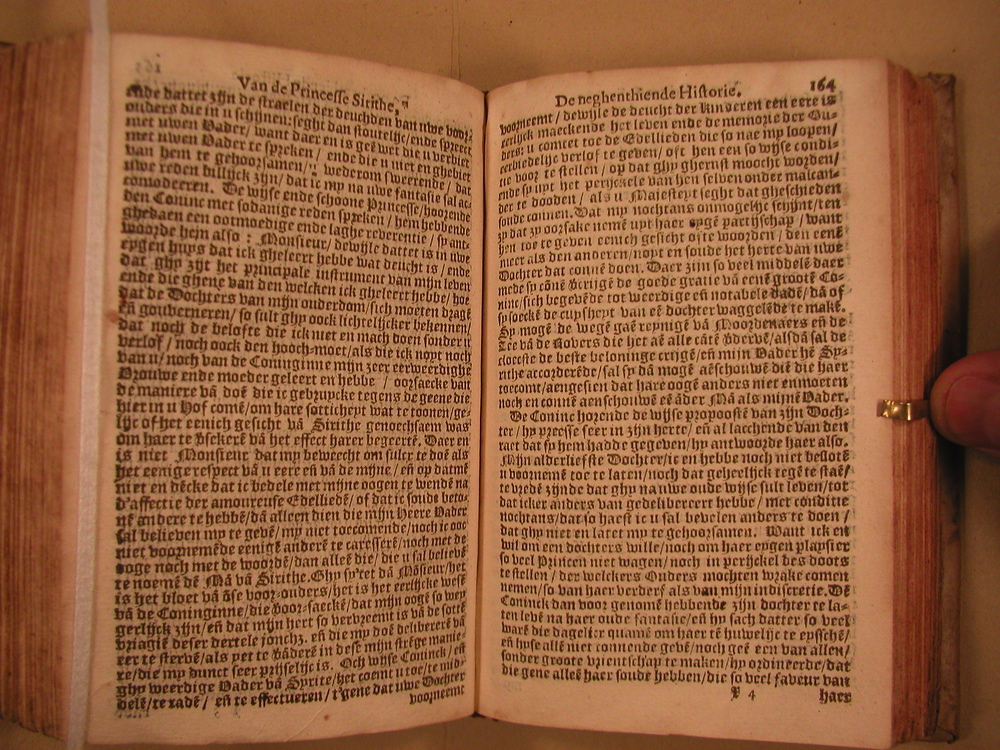 Van de Princesse Sirithe,
ende dattet zijn de straelen der deuchden van uwe voor-
ouders die in u schijnen: seght dan stoutelijc/ ende spreect
met uwen Vader/ want daer en is geẽ wet die u verbiet
met uwen Vader te sprekẽ/ ende die u niet en ghebiet
van hem te gehoorsamen/ wederom sweerende/ dat
uwe reden billijck zijn/ dat ic my na uwe fantasie sal ac-
comoderen. De wijse ende schoone Princesse/ hoorende
den Coninc met sodanige reden sprekẽ/ hem hebbende
ghedaen een ootmoedige ende laghe reverentie/ sp ant-
woorde hem also: Monsieur/ dewijle dattet is in uwe
eygen huys dat ick gheleert hebbe wat deucht is/ ende
dat ghy zijt het principale instrument van mijn leven
ende die ghene van den welcken ick gheleert hebbe/ hoe
dat de Dochters van mijn ouderdom/ sich moeten dragẽ
eñ gouverneren/ so sult ghy oock lichtelijcker bekennen/
dat noch de belofte die ick niet en mach doen sonder u
verlof/ noch oock den hooch-moet/ als die ick noyt noch
van u/ noch van de Coninginne mijn zeer eerweerdighe
Vrouwe ende moeder geleert en hebbe/ oorsaecke van
de maniere vã doẽ die ic gebruycke tegens de geene die
hier in u Hof comẽ/ om hare sotticheyt wat te toonen/ ge-
lijc of het eenich gesicht vã Sirithe genoechsaem was
om haer te ṽsekerẽ vã het effect harer begeertẽ. Daer en
is niet Monsieur dat my beweecht om sulcx te doẽ als
het eenige respect vã u eere eñ vã de mijne/ eñ op datmẽ
niet en dẽcke dat ic bedele met mijne oogen te wendẽ na
d'affectie der amoureuse Edelliedẽ/ of dat ic soude beto-
nẽ andere te hebbẽ/ dã alleen dien die mijn Heere Vader
sal believen my te gevẽ/ my niet toecomende/ noch ic ooc
niet voornemẽde eenigẽ anderẽ te caresserẽ/ noch met de
ooge noch met de woordẽ/ dan alleẽ die/ die u sal believẽ
te noemẽ dẽ Mã vã Sirithe. Ghy syt et dã Mõsieur/ het
is het bloet vã õse voor-ouders/ het is het eerlijcke wesẽ
vã de Coninginne/ die oor-saeckẽ/ dat mijn oogẽ so wey
gerlijck zijn/ eñ dat mijn hert so vervreemt is vã de sotte
vriagiẽ deser dertele jonchz. eñ die my doẽ delibererẽ vã
eer te stervẽ/ als yet te vãderẽ in dese mijn strẽge manie-
re/ die my dunct seer prijselijc is. Och wijse Coninck/ eñ
ghy weerdige Vader vã Syrite/ het coemt u toe/ te mid-
delẽ/ te radẽ/ eñ te effectueren/ t'gene dat uwe Dochter
voorneemt
De neghenthiende Historie. 164
voorneemt/ dewijle de deucht der kinderen een eere is
eerlijck maeckende het leven ende de memorie der Ou-
ders: u comtet toe de Edellieden die so nae my loopen/
eerbiedelijc verlof te geven/ oft hen een so wijse condi-
tie voor te stellen/ op dat ghy gherust moocht worden/
ende sp uyt het perijckele van hen selven onder malcan-
der te dooden/ als u Majesteyt seght dat gheschieden
soude connen. Wat my nochtans onmogelijc schijnt/ ten
zy dat zy oorsake nemẽ uyt haer eygẽ partijschap/ want
hen toe te geven eenich gesicht ofte woorden/ den eenẽ
meer als den anderen/ noyt en soude het herte van uwe
Dochter dat connẽ doen. Daer zijn so veel middelẽ daer
mede sp cõnẽ ṽcrijgẽ de goede gratie vã eenẽ grootẽ Co-
ninc/ sich begevẽde tot weerdige eñ notabele dadẽ/ dã of
sp soeckẽ de cupsheyt van eẽ dochter waggelẽde te makẽ.
Sy mogẽ de wegẽ gaẽ reynigẽ vã Moordenaers eñ de
Zee vã de Rovers die het aẽ alle cãtẽ ṽdervẽ/ alsdã sal de
cloecste de beste beloninge crijgẽ/ eñ mijn Vader hẽ Sy-
rithe accorderẽde/ sal sp dã mogẽ aẽschouwẽ diẽ die haer
toecomt/ aengesien dat hare oogẽ anders niet en moeten
noch en connẽ aenschouwẽ eẽ ãder Mã als mijnẽ Vader.
De Coninc horende de wijse propoostẽ van zijn Doch-
ter/ hy preesse seer in zijn herte/ eñ al lacchende van den
raet dat sp hem hadde gegeven/ hy antwoorde haer also.
Mijn alderliefste Dochter/ ic en hebbe noch niet beslotẽ
u voornemẽ toe te laten/ noch dat geheelijck tegẽ te staẽ/
te vredẽ zijnde dat ghy na uwe oude wijse sult leven/ tot
dat icker anders van gedelibereert hebbe/ met conditie
nochtans/ dat so haest ic u sal bevelen anders te doen/
dat ghy niet en latet my te gehoorsamen. Want ick en
wil om een dochters wille/ noch om haer eygen playsier
so veel Princen niet wagen/ noch in perijckel des doots
te stellen/ der welckers Ouders mochten wrake comen
nemen/ so van haer verderf als van mijn indiscretie. De
Coninck dan voor genomẽ hebbende zijn dochter te la-
ten levẽ na haer oude fantasie/ eñ hy sach datter so veel
warẽ die dagelicx quamẽ om haer tẽ huwelijc te eysschẽ/
eñ hyse allẽ niet connende gevẽ/ noch geẽ een van allen/
sonder groote vrientschap te maken/ hy ordineerde/ dat
die gene alleẽ haer soude hebben/ die so veel faveur van
X 4 haer